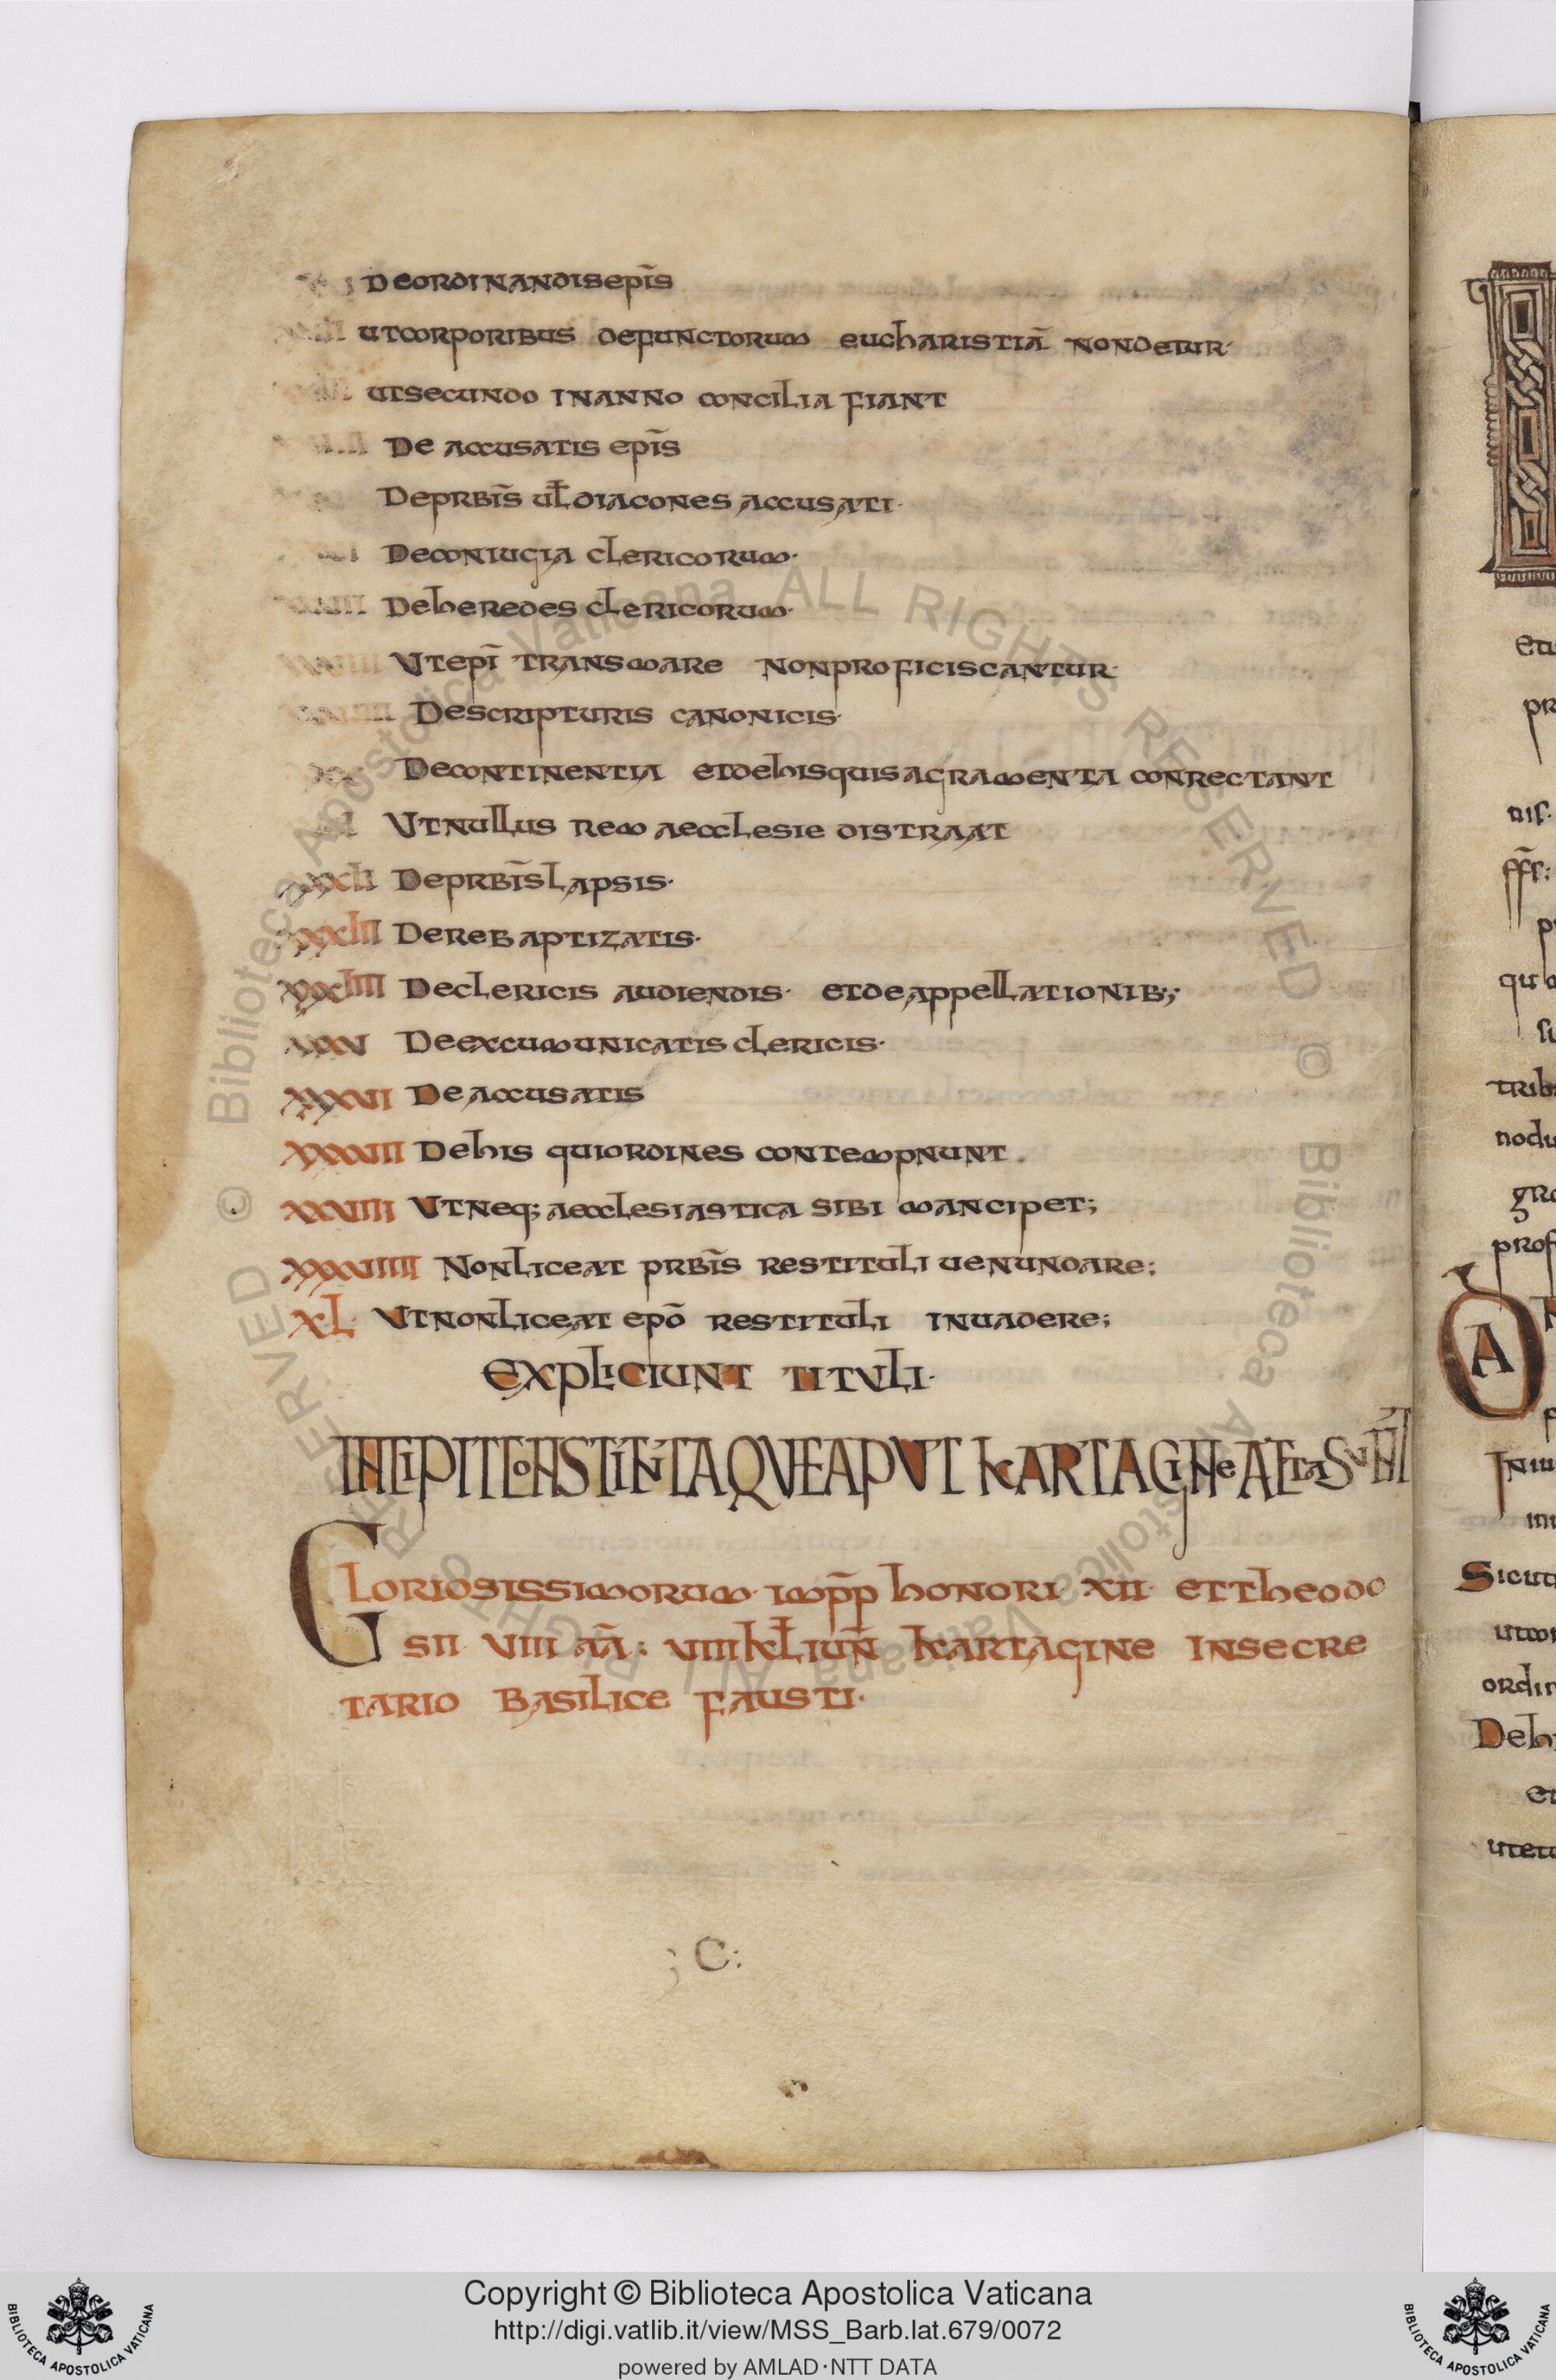 Deordinandisepīs
utcorporibus defunctorum eucharistiā nondetur·
utsecundo inanno concilia fiant
De accusatis epīs
Deprbīs ul̄diacones accusati·
Deconiugia clericorum·
Deheredes clericorum·
Vtepī transmare nonproficiscantur·
Descripturis canonicis·
Decontinentia etdehisquisagramenta conrectant
Vtnullus rem aecclesie distraat
xxxii Deprbīslapsis·
xxxiii Derebaptizatis·
xxxiiii Declericis audiendis· etdeappellationib;;
xxxv Deexcumunicatis clericis·
xxxvi De accusatis
xxxvii Dehis quiordines contempnunt.
xxxviii Vtneq; aecclesiastica sibi mancipet;
xxxviiii Nonliceat prbīs restituli uenundare;
xL· Vtnonliceat epō restituli inuadere;
Expliciunt tituli·
INCIPIT CONSTITUTA QVE APVT KARTAGINE ACTA SUNT
Gloriosissimorum· imp̄p honori xii· ettheodo
sii· viii āā; viiiikl̄iuñ kartagine insecre
tario basilice fausti·
; C:
etu
pr
nis·
ff̄r;
p
qu
su
trib
nodu
gra
prof
A
Iniu
Sicut
utcor
ordin
Deh
et
utetu
Copyright © Biblioteca Apostolica Vaticana
http://digi.vatlib.it/view/MSS_Barb.lat.679/0072
powered by AMLAD·NTT DATA
BIBLIOTECA APOSTOLICA VATICANA
BIBLIOTECA APOSTOLICA VATICANA
© Biblioteca Apostolica Vaticana ALL RIGHTS RESERVED © Biblioteca Apostolica Vaticana ALL RIGHTS RESERVED